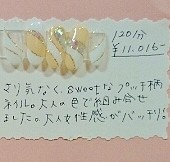 120分
¥11.016-
さり気なく、sweetなプッチ柄
ネイル。大人の色で組み合せ
ました。大人女性感がバッチリ。